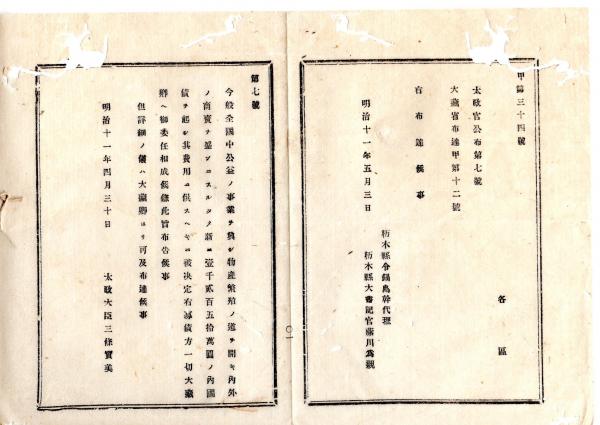 甲第三十四號
各區
太政官公布第七號
大藏省布達甲第十二號
右布達候事
明治十一年五月三日
栃木縣令鍋島幹代理
栃木縣大書記官藤川爲親
第七號
今般全國中公益ノ事業ヲ興シ物產繁殖ノ道ヲ開キ內外
ノ商賣ヲ盛ンニスルタメ新ニ壹千貳百五拾萬圓ノ內國
債ヲ起シ其費用ニ供スヘキニ被決定右募債方一切大藏
卿ヘ御委任相成候條此旨布告候事
但詳細ノ儀ハ大藏卿ヨリ可及布達候事
明治十一年四月三十日
太政大臣三條實美